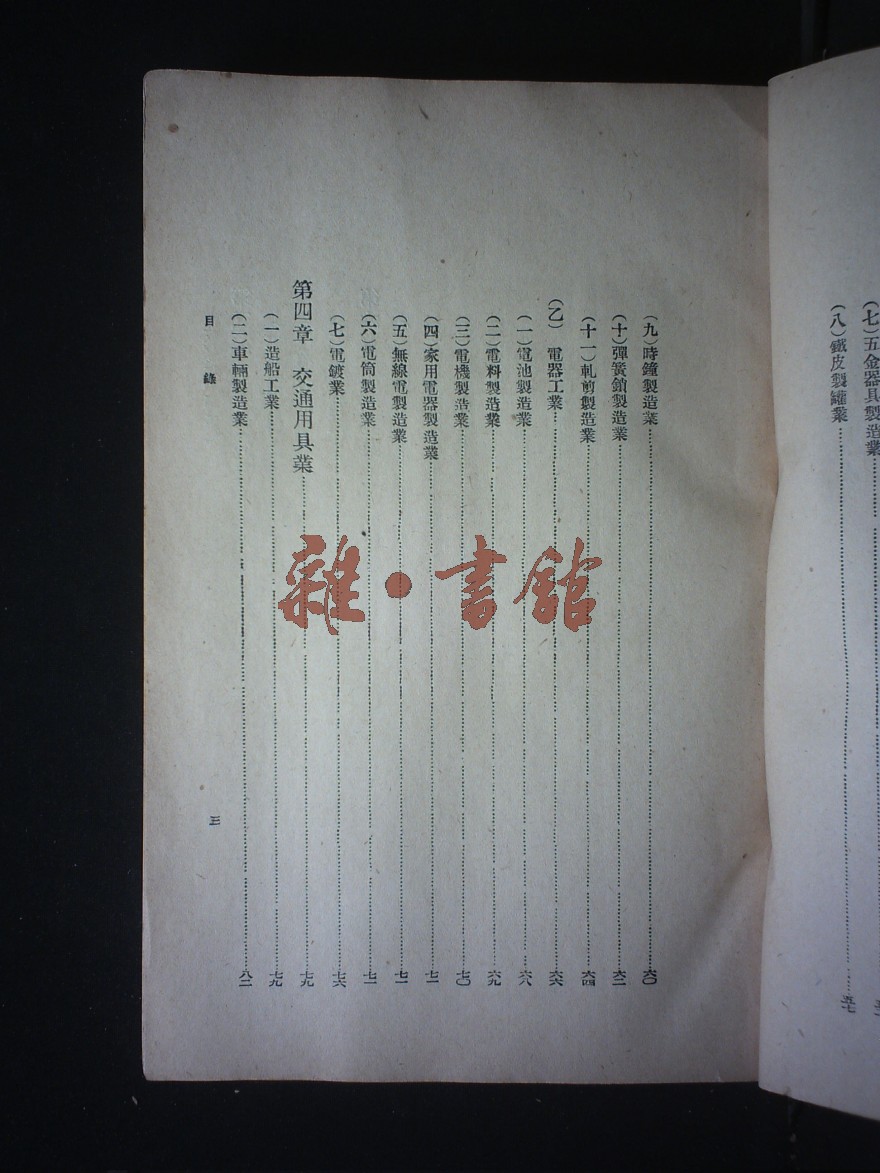 (七)五金器具製造業
(八)鐵皮製罐業………五七
(九)時鐘製造業………六〇
(十)彈簧鎖製造業………六二
(十一)軋剪製造業………六四
(乙) 電器工業………六六
(一)電池製造業………六八
(二)電料製造業………六九
(三)電機製造業………七〇
(四)家用電器製造業………七一
(五)無線電製造業………七一
(六)電筒製造業………七一
(七)電鍍業………七六
第四章 交通用具業………七九
(一)造船工業………七九
(二)車輛製造業………八二
目錄
三
雜·書館